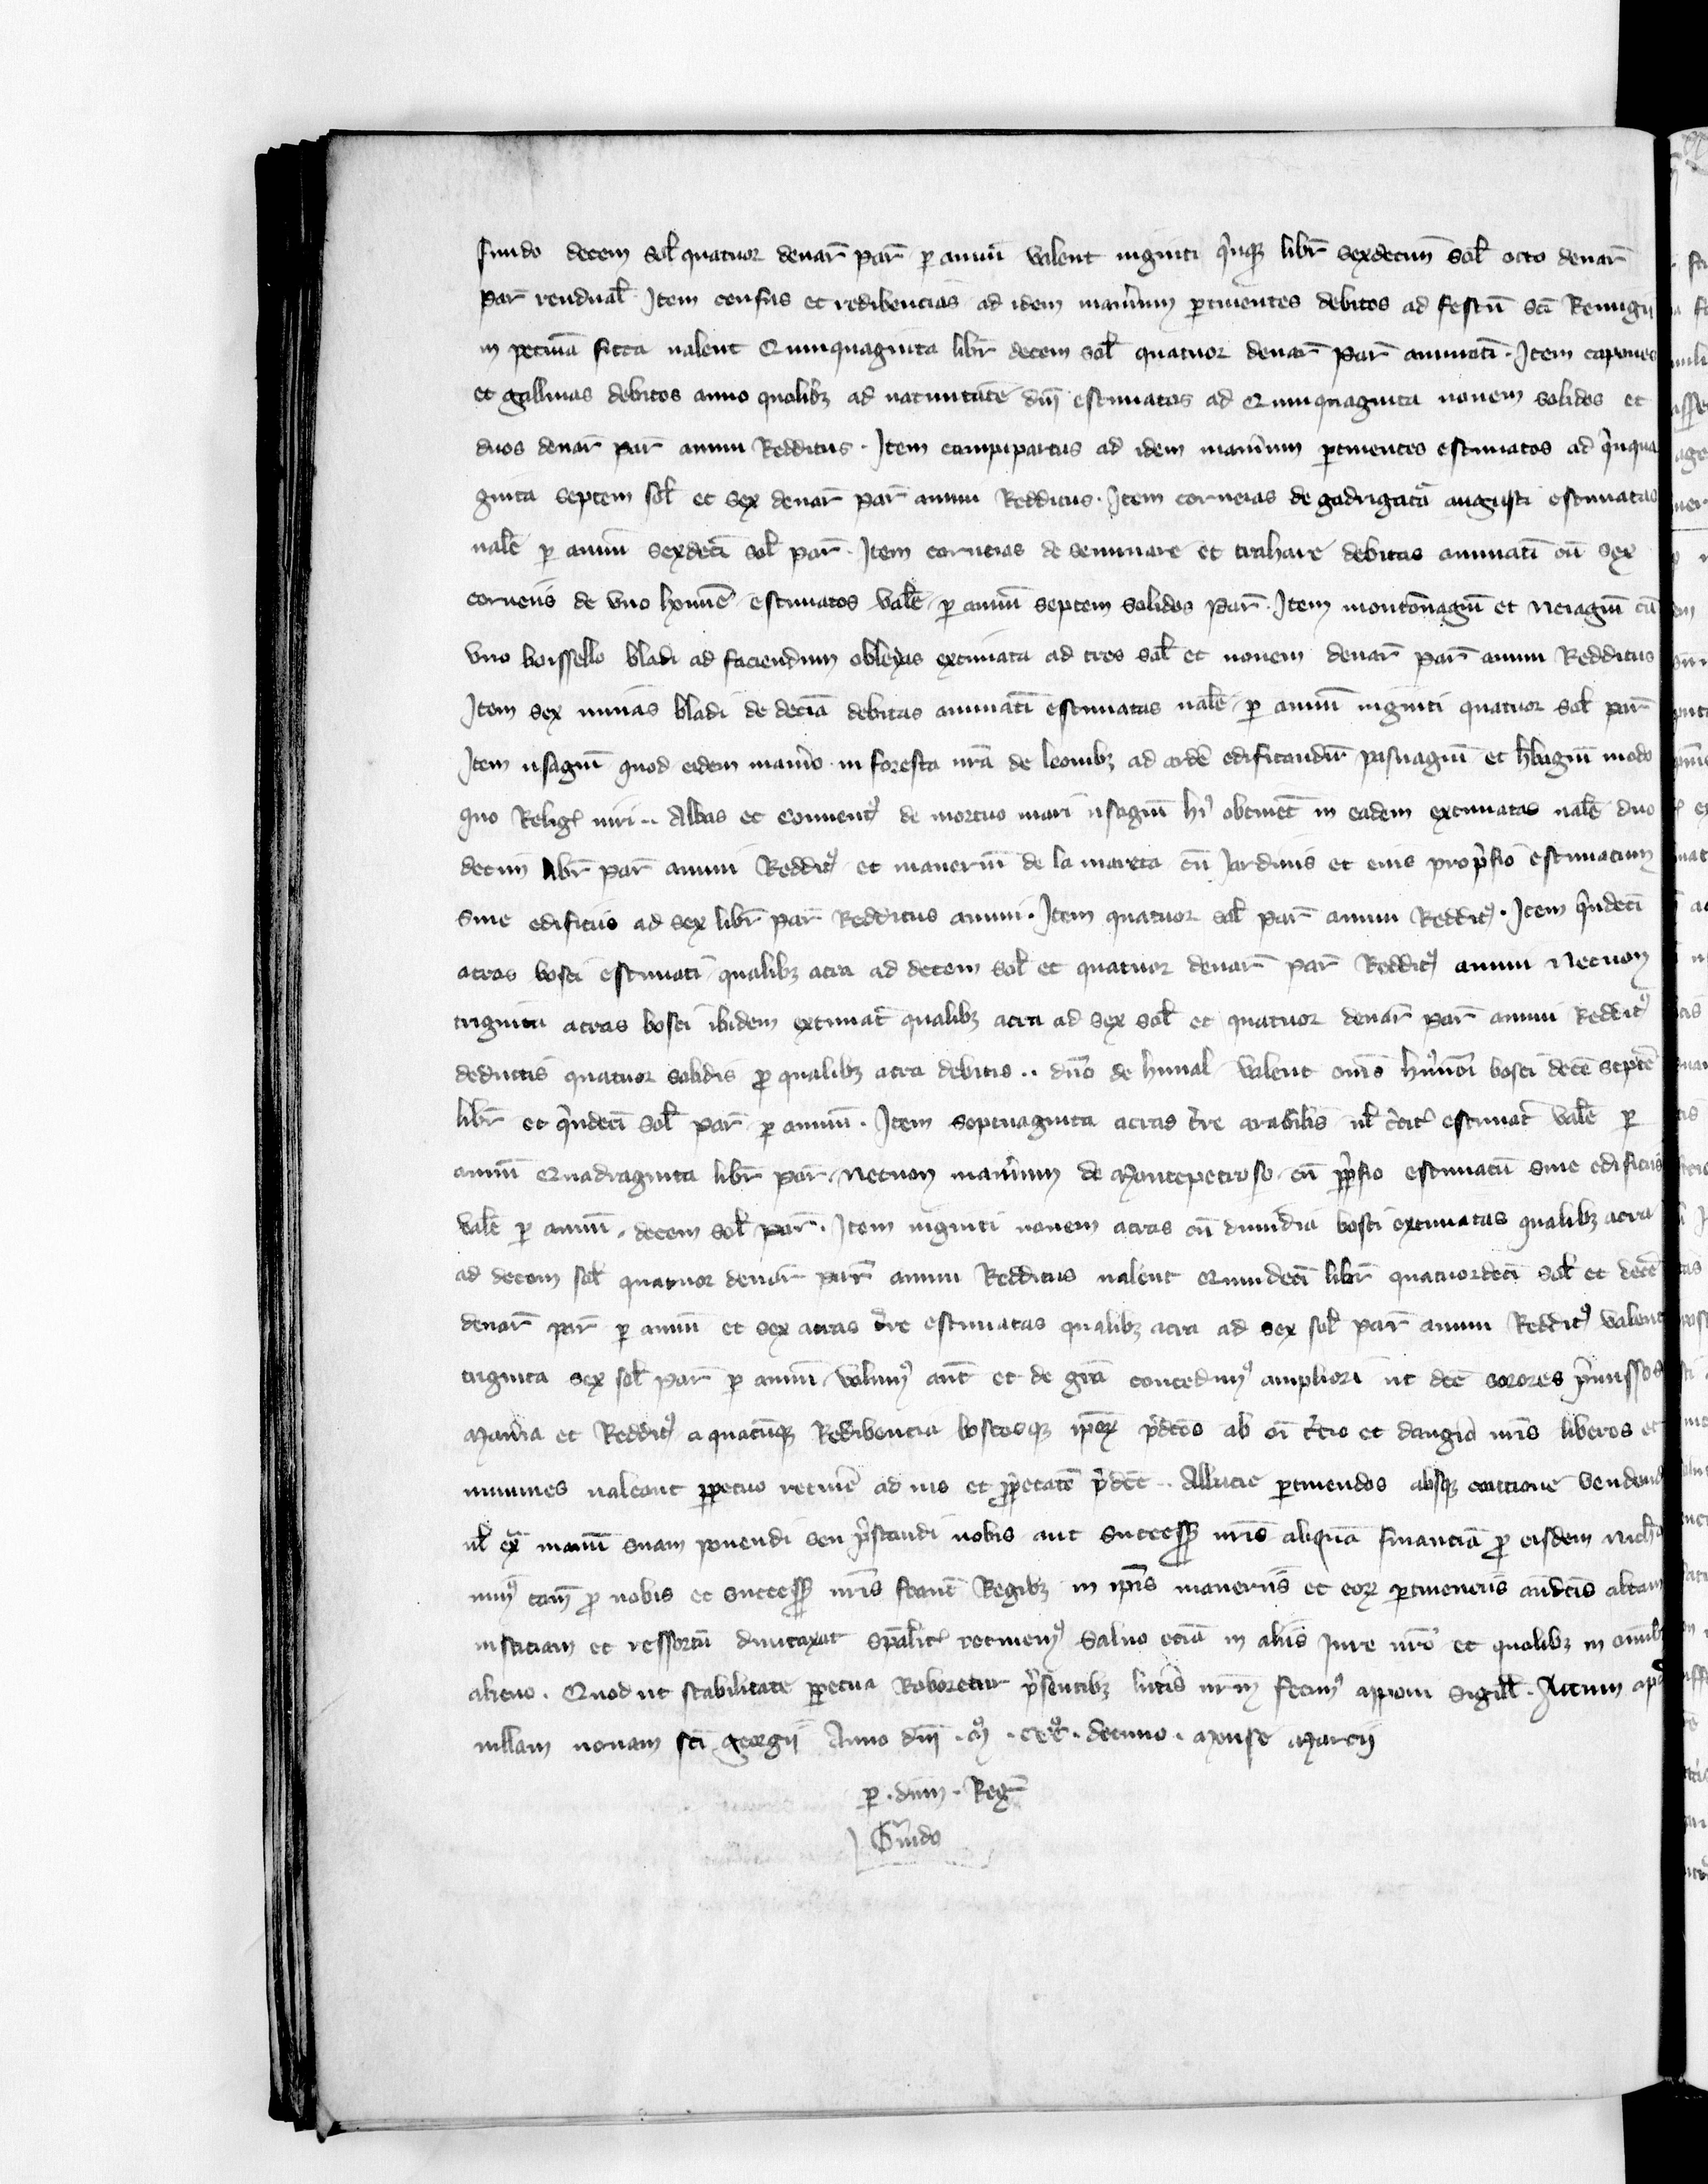 fundo decem sol̄ quatuor denar̄ par̄ ꝑ annū valent viginti q̉nqꝫ libr̄ sexdecim sol̄ octo denar̄
par̄ rendual̄. Item census et redibencias ad idem maner̉ium ꝑtinentes debitos ad festū sc̄i Remigii
in pecūia sicca valent Quinquaginta libr̄ decem sol̄ quatuor denar̄ par̄ annuatī. Item capones
et gallinas debitos anno qualibꝫ ad natiuitatē dn̄i estimatos ad Quinquaginta nouem solidos et
duos denar̄ par̄ annui Redditus. Item campipartus ad idem maner̉ium ꝑtinentes estimatos ad q̉nqua
ginta septem sol̄ et sex denar̄ par̄ annui Redditus. Item corueias de gadrigatā augusti estimatas
valē ꝑ annū sexdecī sol̄ par̄. Item corueias de seminare et trahare debitas annuatī cū sex
corueiis de vno homīe estimatos valē ꝑ annū septem solidos par̄. Item montōnagiū et neiagiū cū
vno boissello bladi ad faciendum obleyas extimata ad tres sol̄ et nouem denar̄ par̄ annui Redditus
Item sex minas bladi de deciā debitas annuatī estimatas valē ꝑ annū viginti quatuor sol̄ par̄
Item usagiū quod eidem maner̉io in foresta nr̄a de leonibꝫ ad ardē edificandū pasnagiū et h̉bagiū modo
quo Relig̉ viri .. Abbas et conuentꝰ de mortuo mari usagiū hỉ obtinēt in eadem extimatas valē duo
decim libr̄ par̄ annui Redditꝰ et maneriū de la mareta cū Jardinis et eius prop̉sio estimatum
sine edificiis ad sex libr̄ par̄ Redditus annui. Item quatuor sol̄ par̄ annui Redditꝰ. Item q̉ndecī
acras bosci estimatī qualibꝫ acra ad decem sol̄ et quatuor denar̄ par̄ Redditꝰ annui Necnon
triginta acras bosci ibidem extimat̄ qualibꝫ acra ad sex sol̄ et quatuor denar̄ par̄ annui Redditꝰ
deductis quatuor solidis ꝓ qualibꝫ acra debitis .. dn̄o de hunal valent om̄s hỉmōi bosci decē septē
libr̄ et q̉ndecī sol̄ par̄ ꝑ annū. Item septuaginta acras t̉re arabilis ul̄ c̉cit̉ estimat̄ valē ꝑ
annū Quadraginta libr̄ par̄. Necnon maner̉ium de Montepetroso cū ꝓp̉sio estimatū sine edificiis
valē ꝑ annū. decem sol̄ par̄. Item viginti nouem acras cū dimidia bosci extimatas qualibꝫ acra
ad decem sol̄ quatuor denar̄ par̄ annui Redditus valent Quindecī libr̄ quatuordecī sol̄ et decē
denar̄ par̄ ꝑ annū et sex acras t̉re estimatas qualibꝫ acra ad sex sol̄ par̄ annui Redditꝰ valent
triginta sex sol̄ par̄ ꝑ annū. volumꝰ aut̄ et de gr̄a concedimꝰ ampliori ut dc̄e sorores p̉missos
Maner̉ia et Redditꝰ a quacūqꝫ Redibencia boscosqꝫ ip̄oꝝ p̉dc̄os ab oī t̉cio et dangio nr̄is liberos et
inmunes valeant ꝑpetuo retiner̄e ad ius et ꝓp̉etatē p̉dc̄e .. Abbacie ꝑtinendos absqꝫ coactione vendendi
ul̄ ex̄ manū suam ponendi seu p̉standi nobis aut success̄ nr̄is aliquā financiā ꝓ eisdem nich̄
minꝰ tam̄ ꝓ nobis et success̄ nr̄is francē Regibꝫ in ip̄is maneriis et eoꝝ ꝑtinenciis audc̄is altam
iusticiam et ressortū dumtaxat sp̄alit̉ retinemꝰ Saluo eciā in aliis Jure nr̄o et quolibꝫ in omībꝫ
alieno. Quod ut stabilitate ꝑpetua Roboretur p̉sentibꝫ litt̉is nr̄m fecimꝰ apponi sigill̄. Actum apd̄
villam nouam sc̄i georgii Anno dn̄i . Mͦ . cccͦ . decimo . Mense Marcij
ꝑ . dnm̄ . Reḡ
Guido